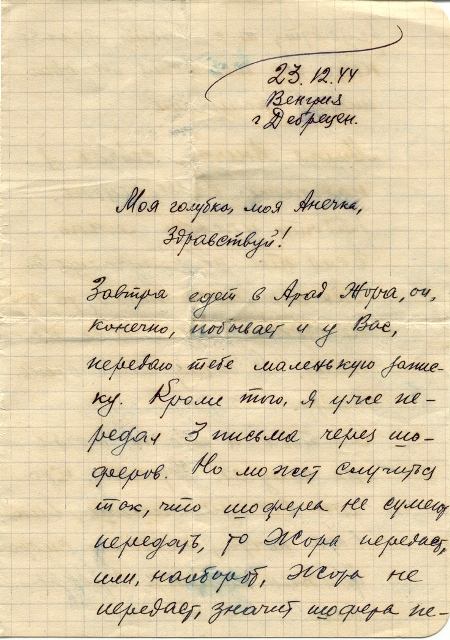 23.12.44
Венгрия
г Дебрецен.
Моя голубка, моя Анечка,
Здравствуй!
Завтра едет в Арад Жора, он,
конечно, побывает и у Вас,
передаю тебе маленькую запис-
ку. Кроме того, я уже пе-
редал 3 письма через шо-
феров. Но может случиться
так, что шофера не сумеют
передать, то Жора передаст,
или, наоборот, Жора не
передаст, значит шофера пе-